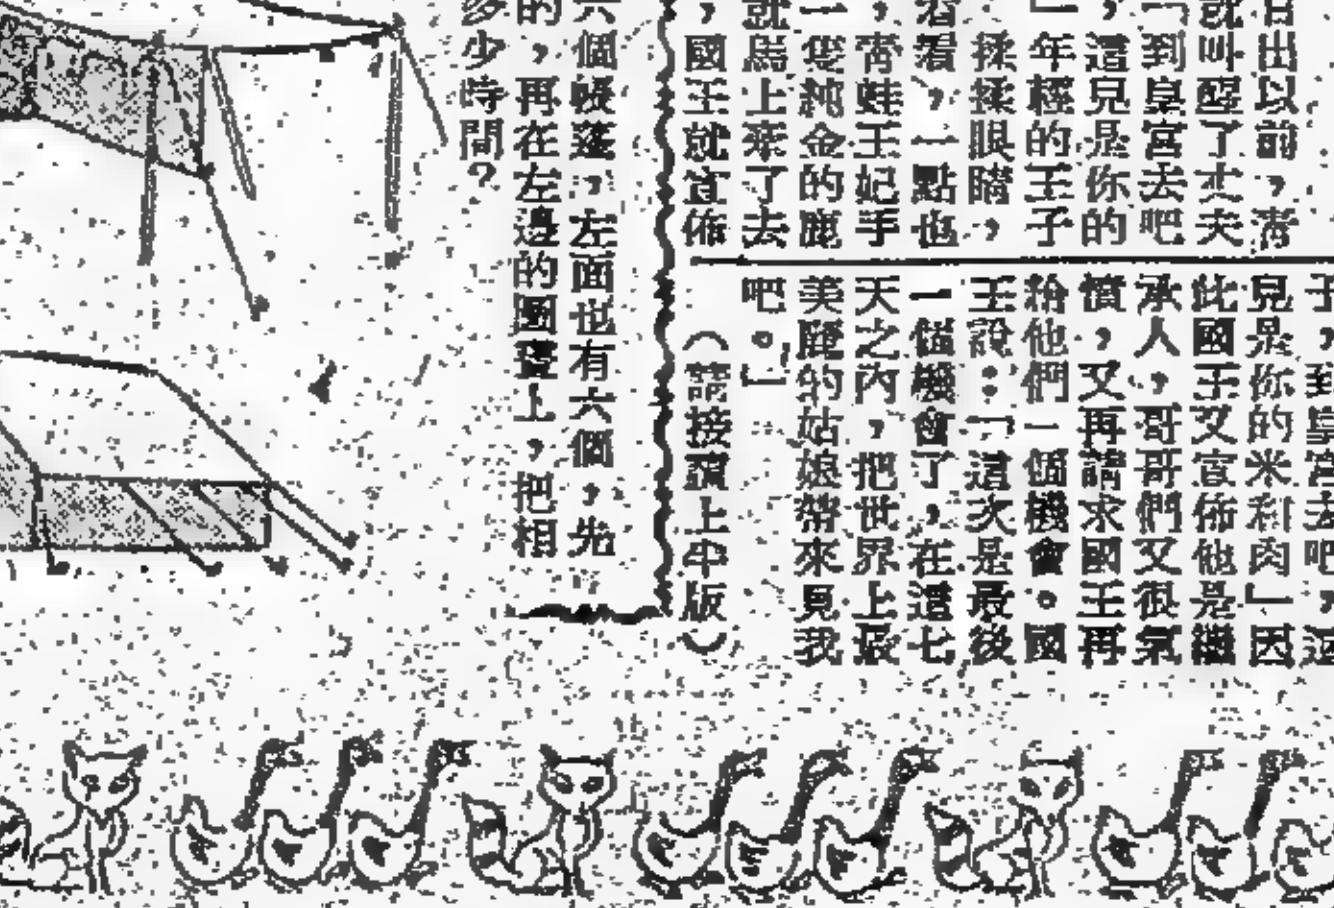 日出以前，青
就叫醒了丈夫
「到皇宮去吧
，這兒是你的
」年輕的王子
揉揉眼睛，
看看，一點也
，青蛙王妃手
一隻純金的鹿
就馬上來了去
，國王就宣佈
子，到皇宮去吧，這
兒是你的米和肉」因
此國王又宣佈他是繼
承人，哥哥們又很氣
憤，又再請求國王再
給他們一個機會。國
王說：「這次是最後
一個機會了，在這七
天之內，把世界上最
美麗的姑娘帶來見我
吧。」
（請接第上半版）
六個帳蓬，左面也有六個，先
的，再在左邊的圖畫上，把相
多少時間？